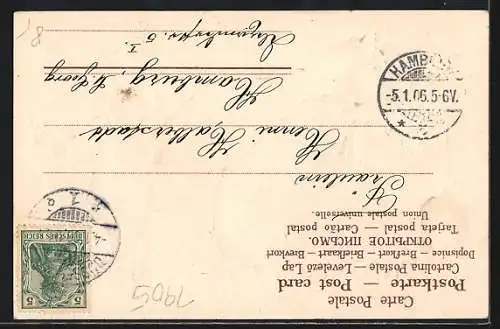 Carte Postale
Postkarte — Post card
Cartolina Postale — Levelező Lap
Dopisnice — Brefkort — Briefkaart — Brevkort
ОТКРЫТОЕ ПИСЬМО.
Tarjeta postal — Cartão postal
Union postale universelle.
Fräulein
Henni Halberstadt
Hamburg, St. Georg
I.
HAMBURG
-5.1.06.5-6V.
* 2
DEUTSCHES REICH
5 5
1905
8